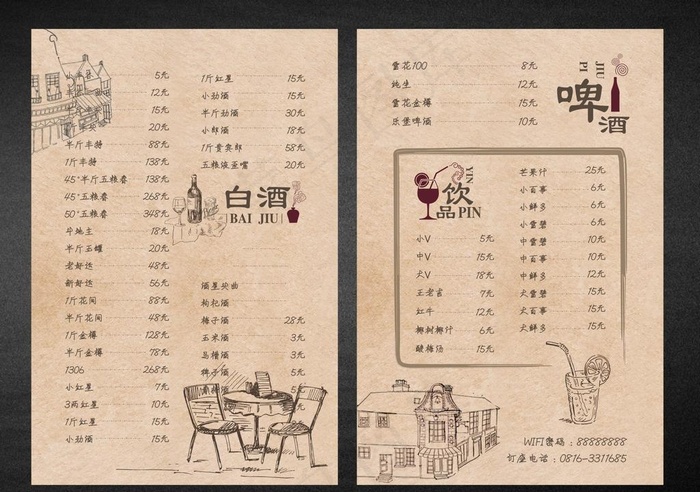 5元
12元
15元
20元
半斤丰谷 88元
1斤丰谷 138元
45°半斤五粮春 138元
45°五粮春 268元
50°五粮春 348元
斗地主 18元
半斤玉罐 20元
老舒达 48元
新舒达 56元
1斤花间 88元
半斤花间 48元
1斤金樽 128元
半斤金樽 78元
1306 268元
小红星 7元
3两红星 10元
1斤红星 15元
小劲酒 15元
1斤红星 15元
小劲酒 15元
半斤劲酒 30元
小郎酒 18元
1斤贵宾郎 58元
五粮浓歪嘴 20元
白酒
BAI JIU
酒星头曲
枸杞酒
梅子酒 28元
玉米酒 3元
乌梢酒 3元
稗子酒 5元
雪花100 8元
纯生 12元
雪花金樽 15元
乐堡啤酒 10元
PI JIU
啤酒
YIN
饮品
PIN
小V 5元
中V 15元
大V 18元
王老吉 7元
红牛 12元
椰树椰汁 6元
酸梅汤 15元
芒果汁 25元
小百事 6元
小鲜多 6元
小雪碧 6元
中雪碧 10元
中百事 10元
中鲜多 12元
大雪碧 15元
大百事 15元
大鲜多 15元
WIFI密码：88888888
订座电话：0816-3311685